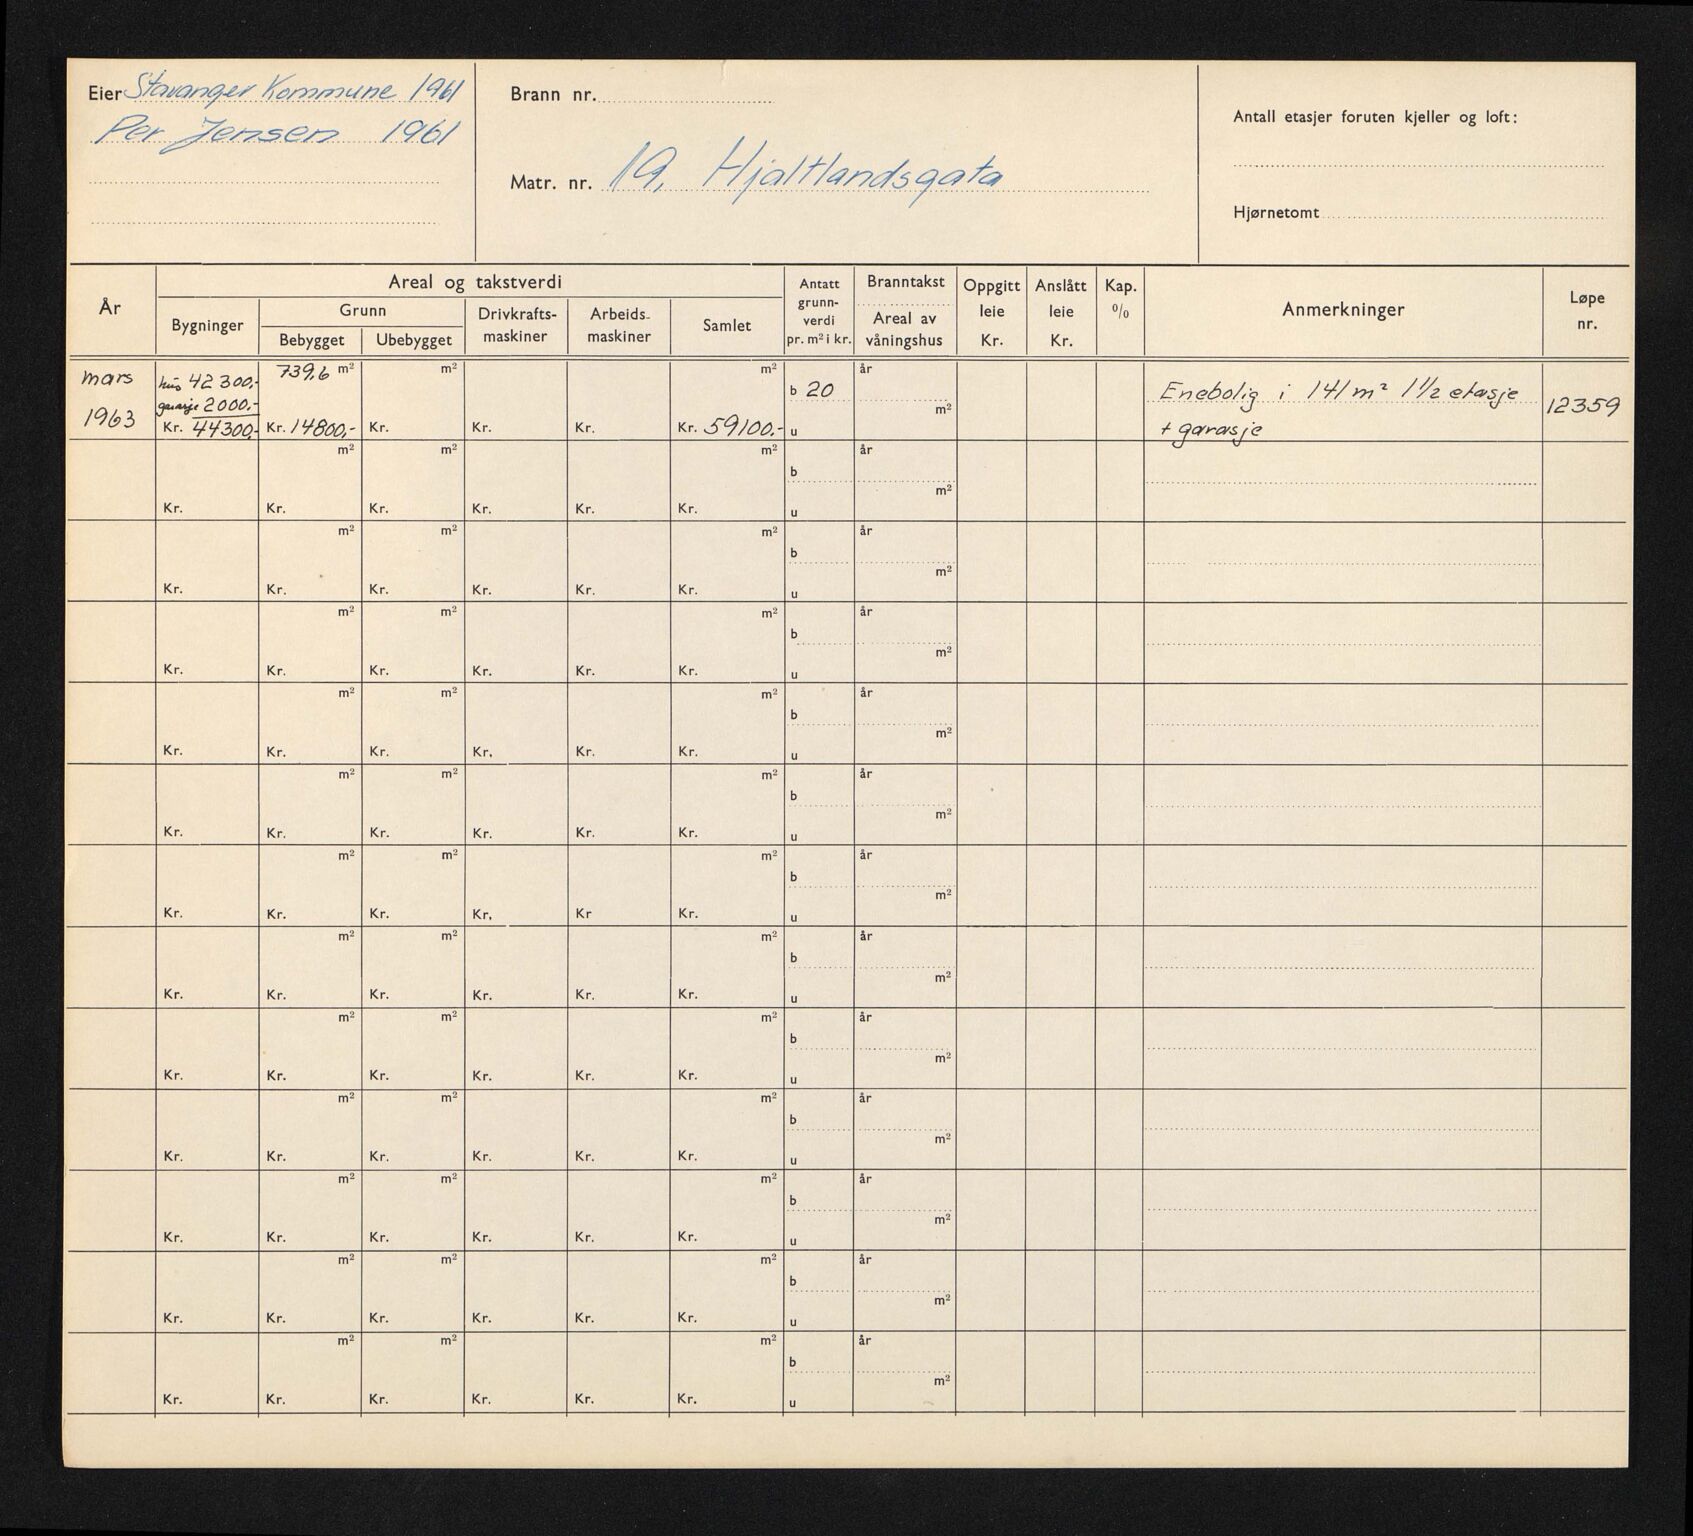 Eier Stavanger Kommune 1961
Per Jensen 1961
Brann nr.
Matr. nr. 19, Hjaltlandsgata
Antall etasjer foruten kjeller og loft:
Hjørnetomt
År
Areal og takstverdi
Bygninger
Grunn
Bebygget
Ubebygget
Drivkrafts-
maskiner
Arbeids-
maskiner
Samlet
Antatt
grunn-
verdi
pr. m² i kr.
Branntakst
Areal av
våningshus
Oppgitt
leie
Kr.
Anslått
leie
Kr.
Kap.
%
Anmerkninger
Løpe
nr.
mars
1963
hus 42300,-
garasje 2000,-
Kr. 44300,-
739,6 m²
Kr. 14800,-
m²
Kr.
Kr.
Kr.
m²
Kr. 59100,-
b 20
u
år
m²
Enebolig i 141 m² 1 1/2 etasje
+ garasje
12359
m² m² m² år
b
m²
Kr. Kr. Kr. Kr. Kr. Kr. u
m² m² m² år
b
m²
Kr. Kr. Kr. Kr. Kr. Kr. u
m² m² m² år
b
m²
Kr. Kr. Kr. Kr. Kr. Kr. u
m² m² m² år
b
m²
Kr. Kr. Kr. Kr. Kr. Kr. u
m² m² m² år
b
m²
Kr. Kr. Kr. Kr. Kr. Kr. u
m² m² m² år
b
m²
Kr. Kr. Kr. Kr, Kr Kr. u
m² m² m² år
b
m²
Kr. Kr. Kr. Kr. Kr. Kr. u
m² m² m² år
b
m²
Kr. Kr. Kr. Kr. Kr. Kr. u
m² m² m² år
b
m²
Kr. Kr. Kr. Kr. Kr. Kr. u
m² m² m² år
b
m²
Kr. Kr. Kr. Kr. Kr. Kr. u
m² m² m² år
b
m²
Kr. Kr. Kr. Kr. Kr. Kr. u
m² m² m² år
b
m²
Kr. Kr. Kr. Kr. Kr. Kr. u